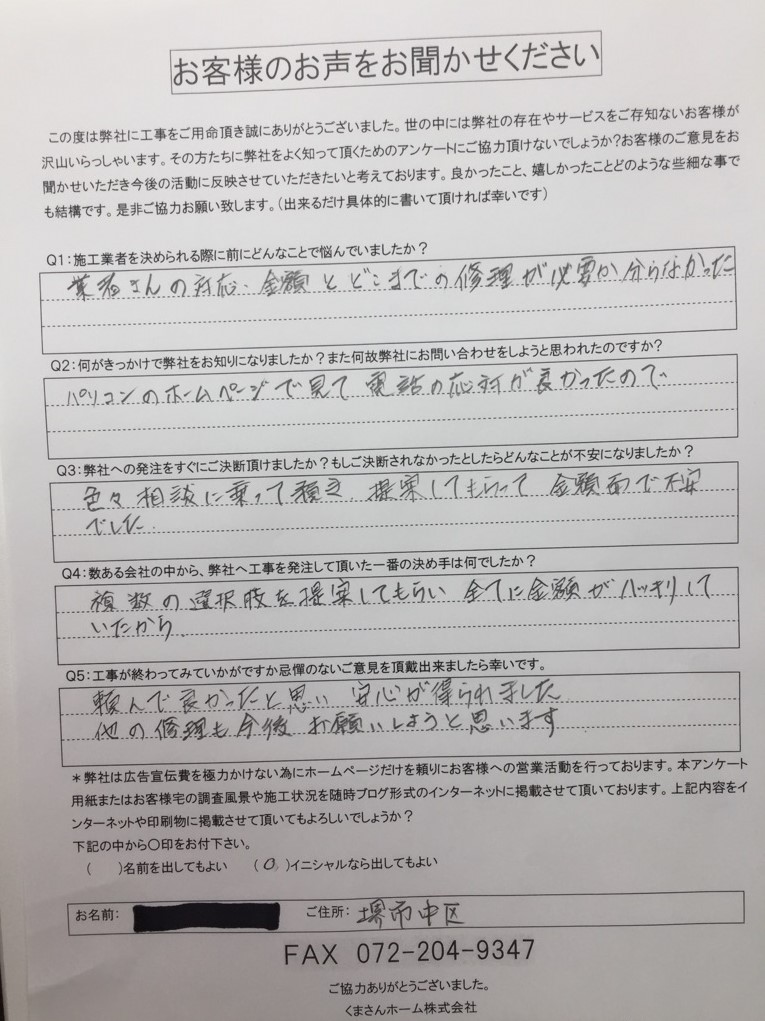 お客様のお声をお聞かせください
この度は弊社に工事をご用命頂き誠にありがとうございました。世の中には弊社の存在やサービスをご存知ないお客様が
沢山いらっしゃいます。その方たちに弊社をよく知って頂くためのアンケートにご協力頂けないでしょうか?お客様のご意見をお
聞かせいただき今後の活動に反映させていただきたいと考えております。良かったこと、嬉しかったことどのような些細な事で
も結構です。是非ご協力お願い致します。(出来るだけ具体的に書いて頂ければ幸いです)
Q1:施工業者を決められる際に前にどんなことで悩んでいましたか?
業者さんの対応、金額とどこまでの修理が必要か分らなかった
Q2:何がきっかけで弊社をお知りになりましたか?また何故弊社にお問い合わせをしようと思われたのですか?
パソコンのホームページで見て電話の応対が良かったので
Q3:弊社への発注をすぐにご決断頂けましたか?もしご決断されなかったとしたらどんなことが不安になりましたか?
色々相談に乗って頂き、提案してもらって 金額面で不安
でした。
Q4:数ある会社の中から、弊社へ工事を発注して頂いた一番の決め手は何でしたか?
複数の選択肢を提案してもらい 全てに金額がハッキリして
いたから。
Q5:工事が終わってみていかがですか忌憚のないご意見を頂戴出来ましたら幸いです。
頼んで良かったと思い 安心が得られました
他の修理も今後 お願いしようと思います
*弊社は広告宣伝費を極力かけない為にホームページだけを頼りにお客様への営業活動を行っております。本アンケート
用紙またはお客様宅の調査風景や施工状況を随時ブログ形式のインターネットに掲載させて頂いております。上記内容をイ
ンターネットや印刷物に掲載させて頂いてもよろしいでしょうか?
下記の中から〇印をお付下さい。
( )名前を出してもよい (〇)イニシャルなら出してもよい
お名前: ご住所: 堺市中区
FAX 072-204-9347
ご協力ありがとうございました。
くまさんホーム株式会社